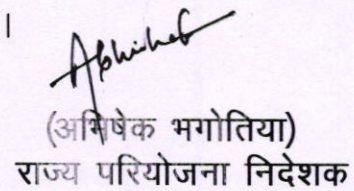 Abhishek
(अभिषेक भगोतिया)
राज्य परियोजना निदेशक